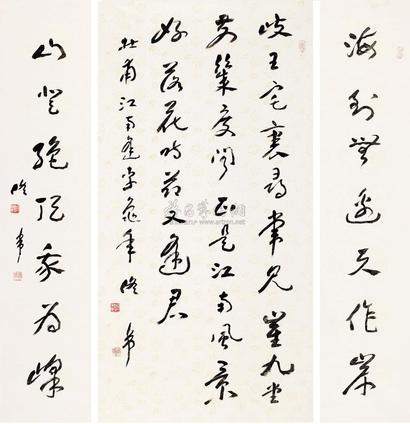 海到无边天作岸
岐王宅裏尋常見崔九堂
前幾度聞正是江南風景
好落花時節又逢君
杜甫江南逢李龜年
山登绝顶我为峰